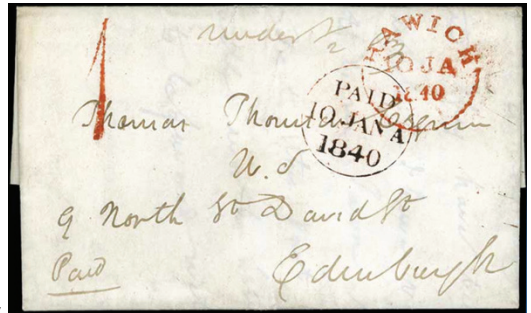 under ½ oz
1
HAWICK
10 JA
1840
PAID
10 JAN A
1840
Thomas Thomson
W.S
9 North St David St
Edinburgh
Paid